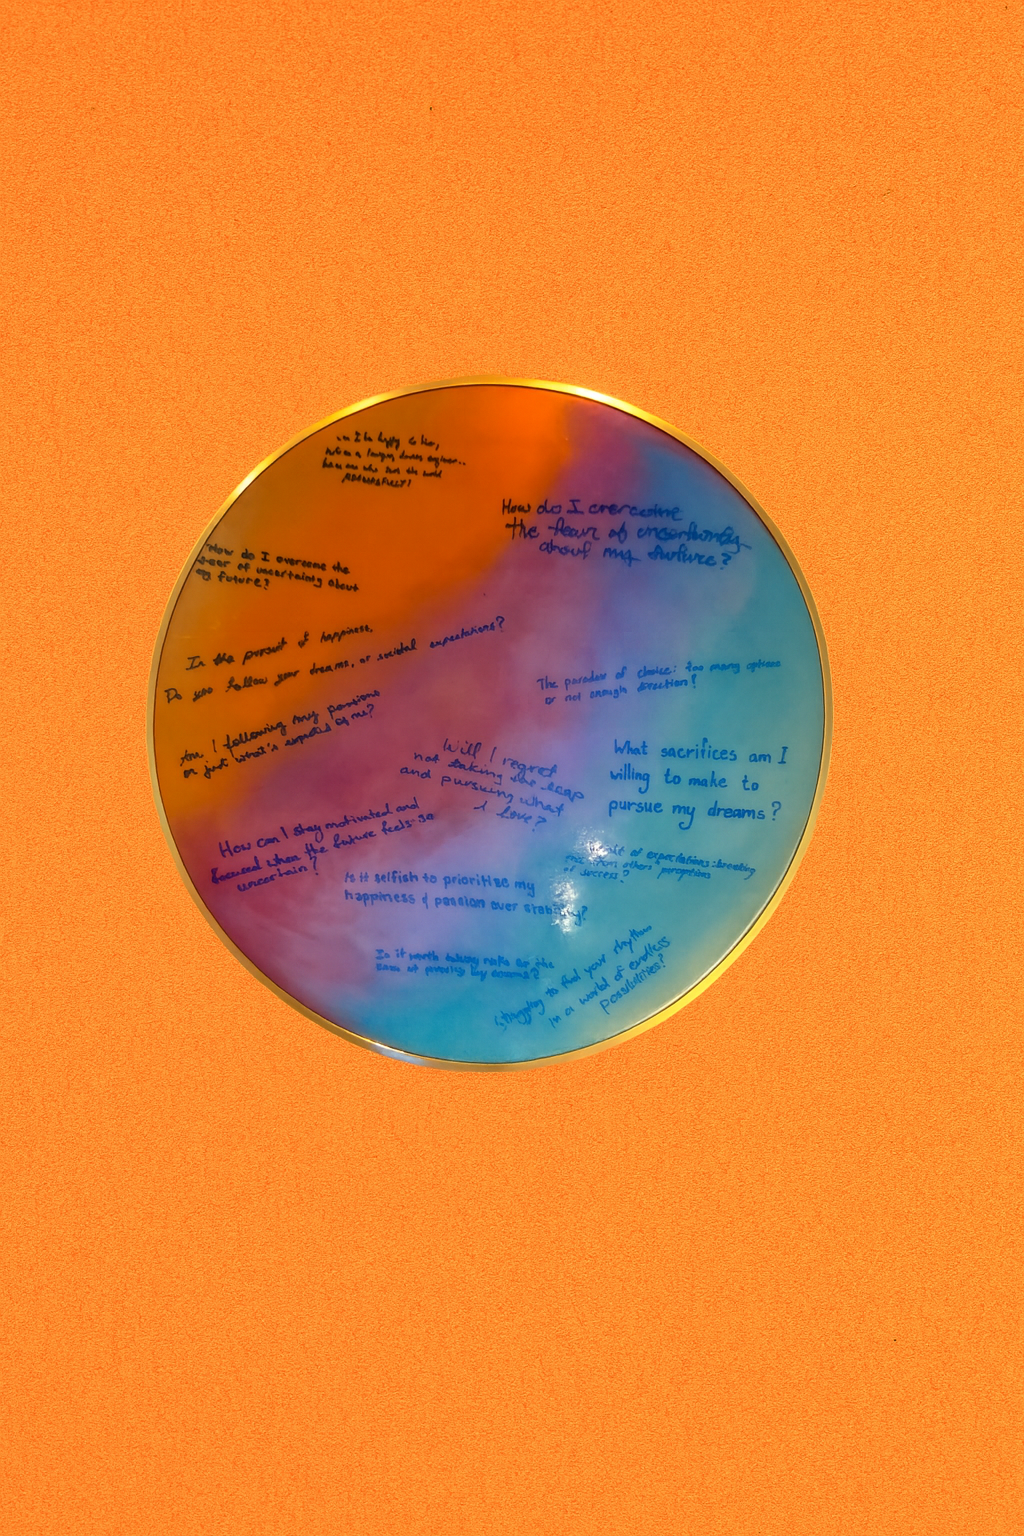 How do I overcome
the fear of uncertainty
about my future?
How do I overcome the
fear of uncertainty about
my future?
In the pursuit of happiness,
Do you follow your dreams, or societal expectations?
The paradox of choice: too many options
or not enough direction?
Am I following my passions
or just what's expected of me?
Will I regret
not taking the leap
and pursuing what
I love?
What sacrifices am I
willing to make to
pursue my dreams?
How can I stay motivated and
focused when the future feels so
uncertain?
of expectations: breaking
from others' perceptions
of success?
Is it selfish to prioritise my
happiness & passion over stability?
Is it worth taking risks for the
of
Struggling to find your rhythm
in a world of endless
possibilities?